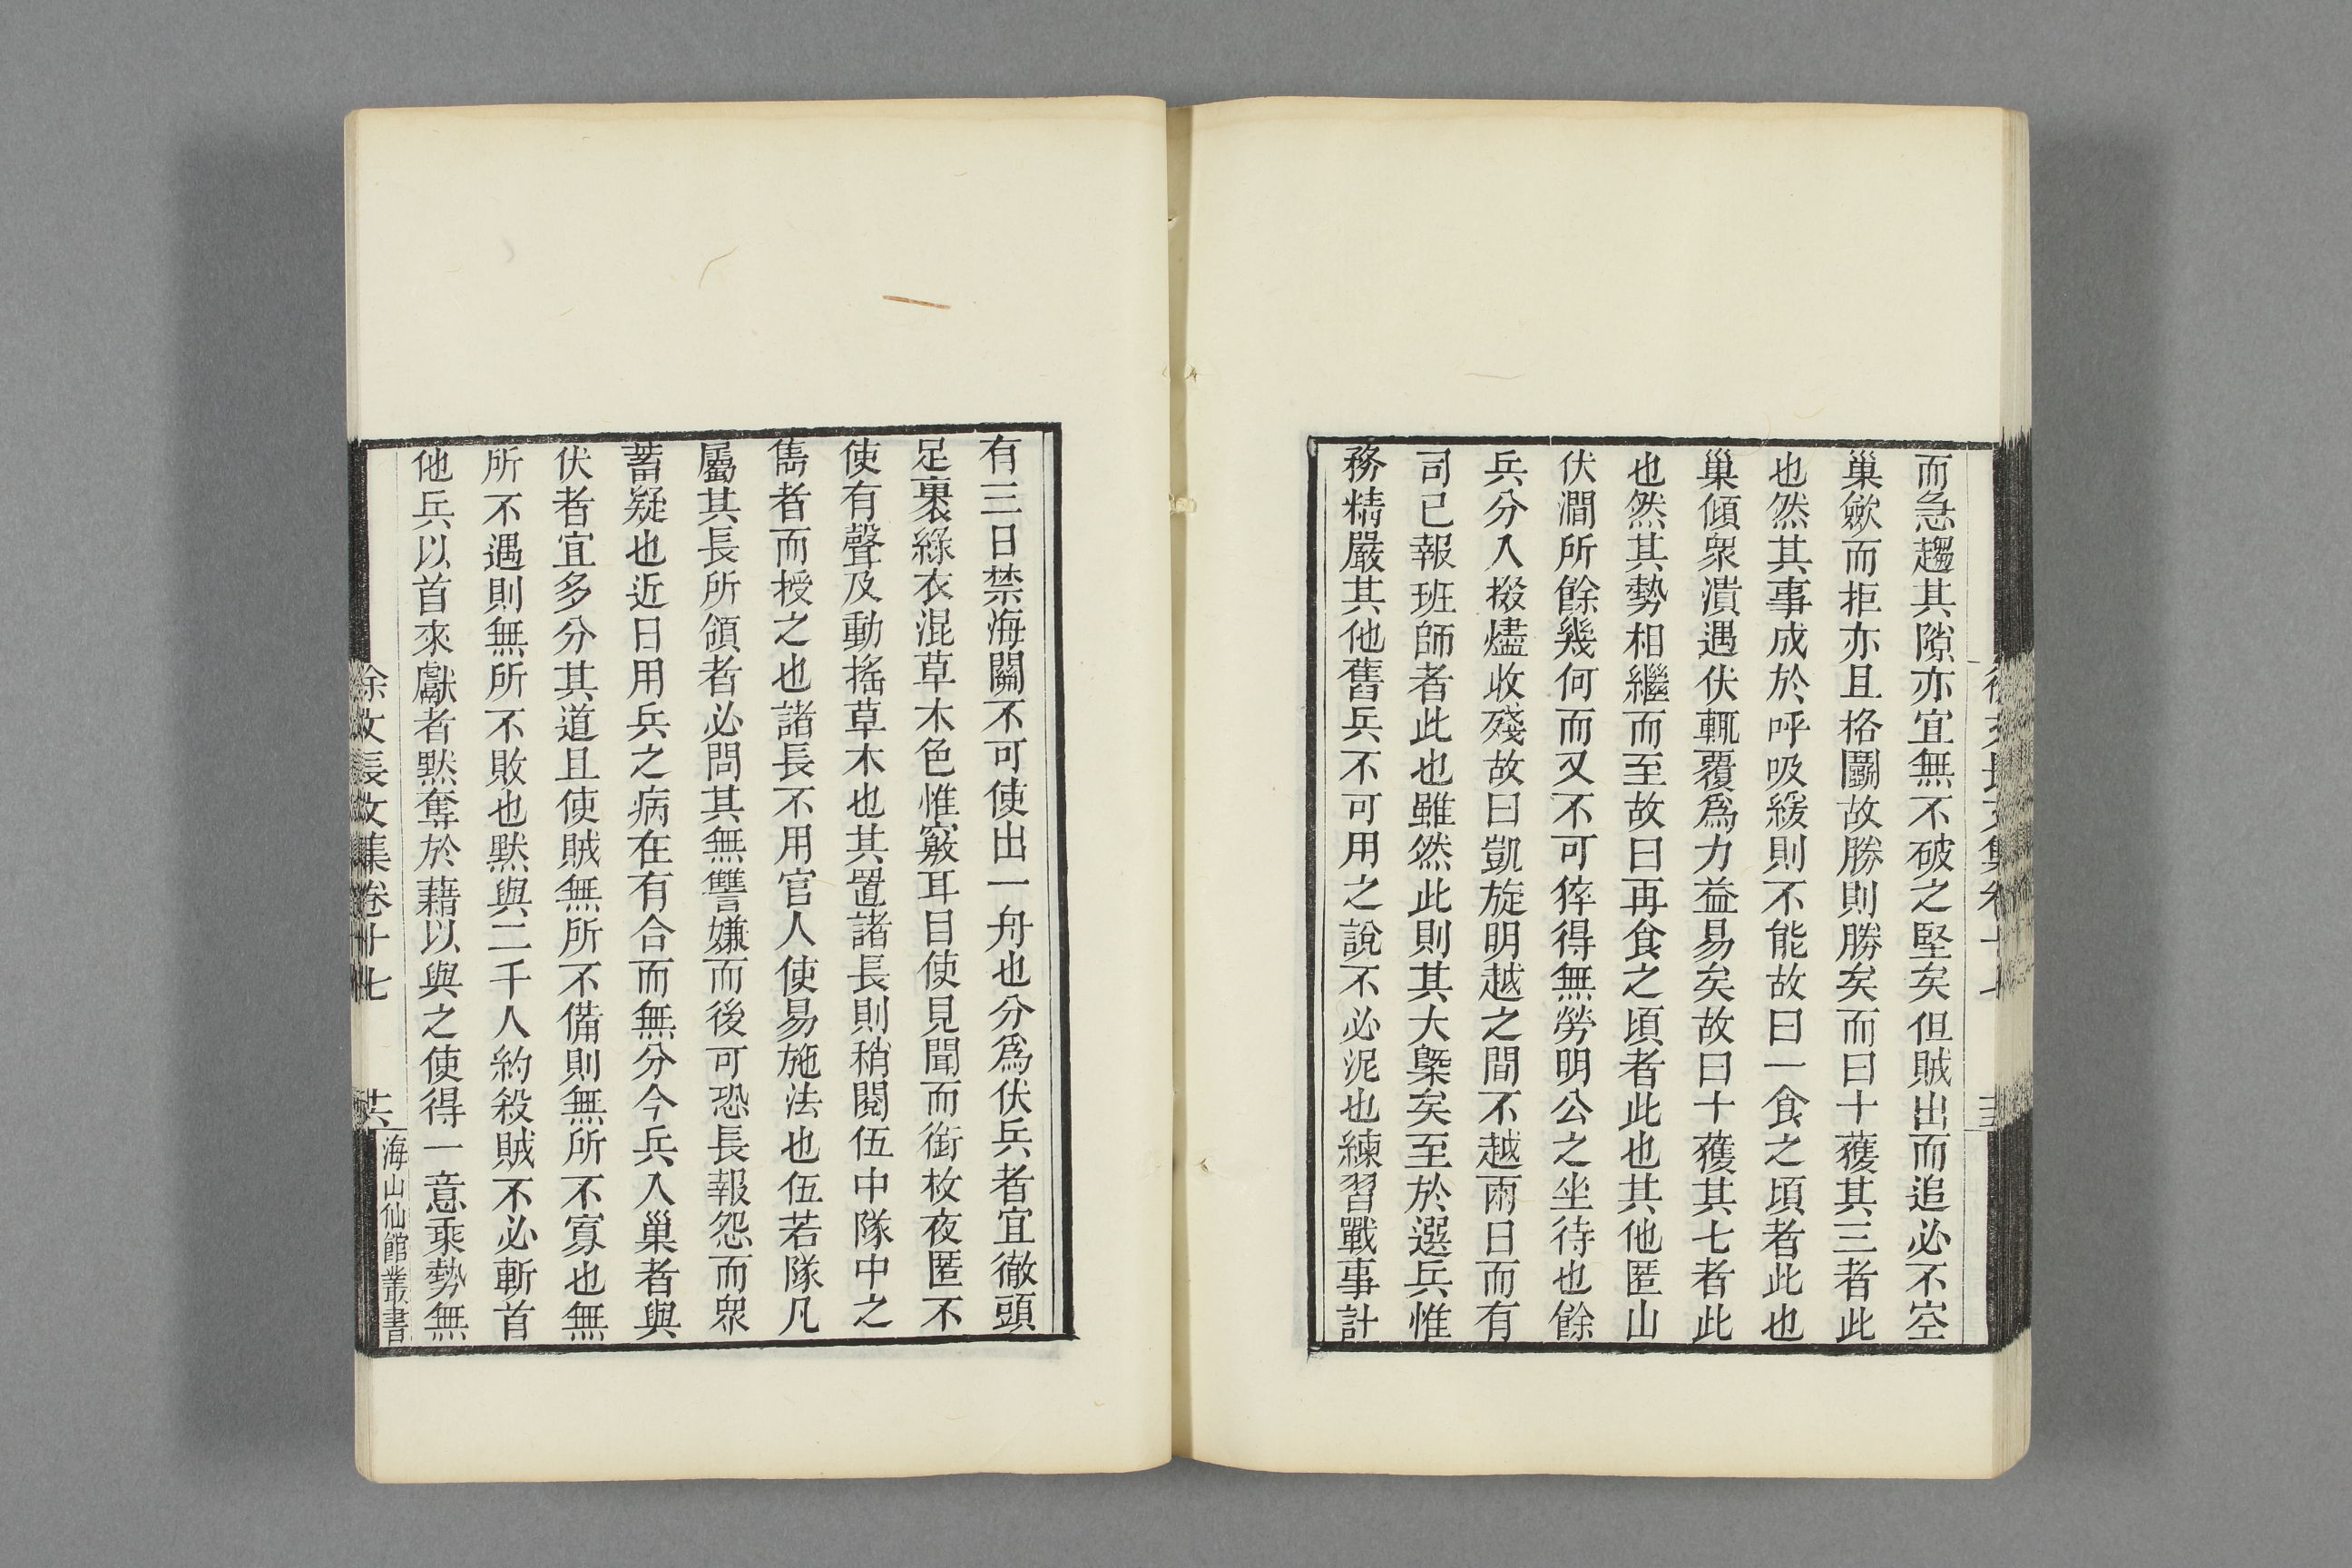 而急趨其隙亦宜無不破之堅矣但賊出而追必不空
巢斂而拒亦且格鬭故勝則勝矣而曰十獲其三者此
也然其事成於呼吸緩則不能故曰一食之頃者此也
巢傾衆潰遇伏輒覆爲力益易矣故曰十獲其七者此
也然其勢相繼而至故曰再食之頃者此也其他匿山
伏澗所餘幾何而又不可猝得無勞明公之坐待也餘
兵分入掇燼收殘故曰凱旋明越之間不越兩日而有
司已報班師者此也雖然此則其大槩矣至於選兵惟
務精嚴其他舊兵不可用之說不必泥也練習戰事計
有三日禁海關不可使出一舟也分爲伏兵者宜徹頭
足裹綠衣混草木色惟竅耳目使見聞而銜枚夜匿不
使有聲及動搖草木也其置諸長則稍閱伍中隊中之
雋者而授之也諸長不用官人使易施法也伍若隊凡
屬其長所領者必問其無讐嫌而後可恐長報怨而衆
蓄疑也近日用兵之病在有合而無分今兵入巢者與
伏者宜多分其道且使賊無所不備則無所不寡也無
所不遇則無所不敗也默與二千人約殺賊不必斬首
他兵以首來獻者默奪於藉以與之使得一意乘勢無
徐文長文集卷十七
海山仙館叢書